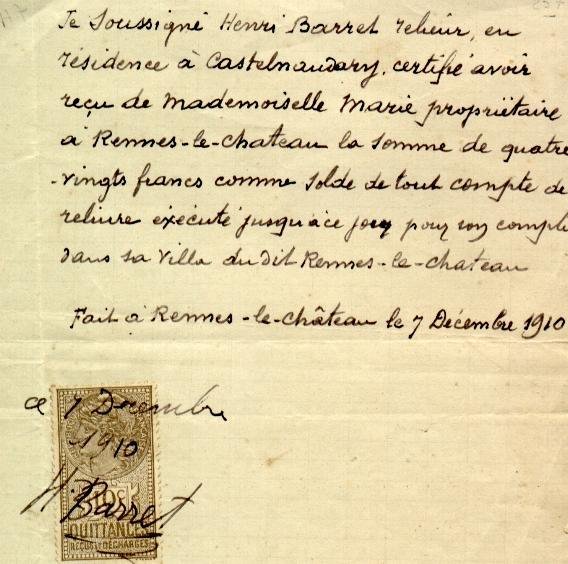 Je Soussigné Henri Barret relieur, en
résidence à Castelnaudary, certifie avoir
reçu de Mademoiselle Marie propriètaire
à Rennes-le-chateau la somme de quatre
-vingts francs comme solde de tout compte de
reliure éxécuté jusqu'à ce jour pour son compte
dans sa villa du dit Rennes-le-chateau
Fait à Rennes-le-château le 7 Décembre 1910
ce 7 Décembre
1910
10c
H. Barret
QUITTANCES
REÇUS ET DÉCHARGES